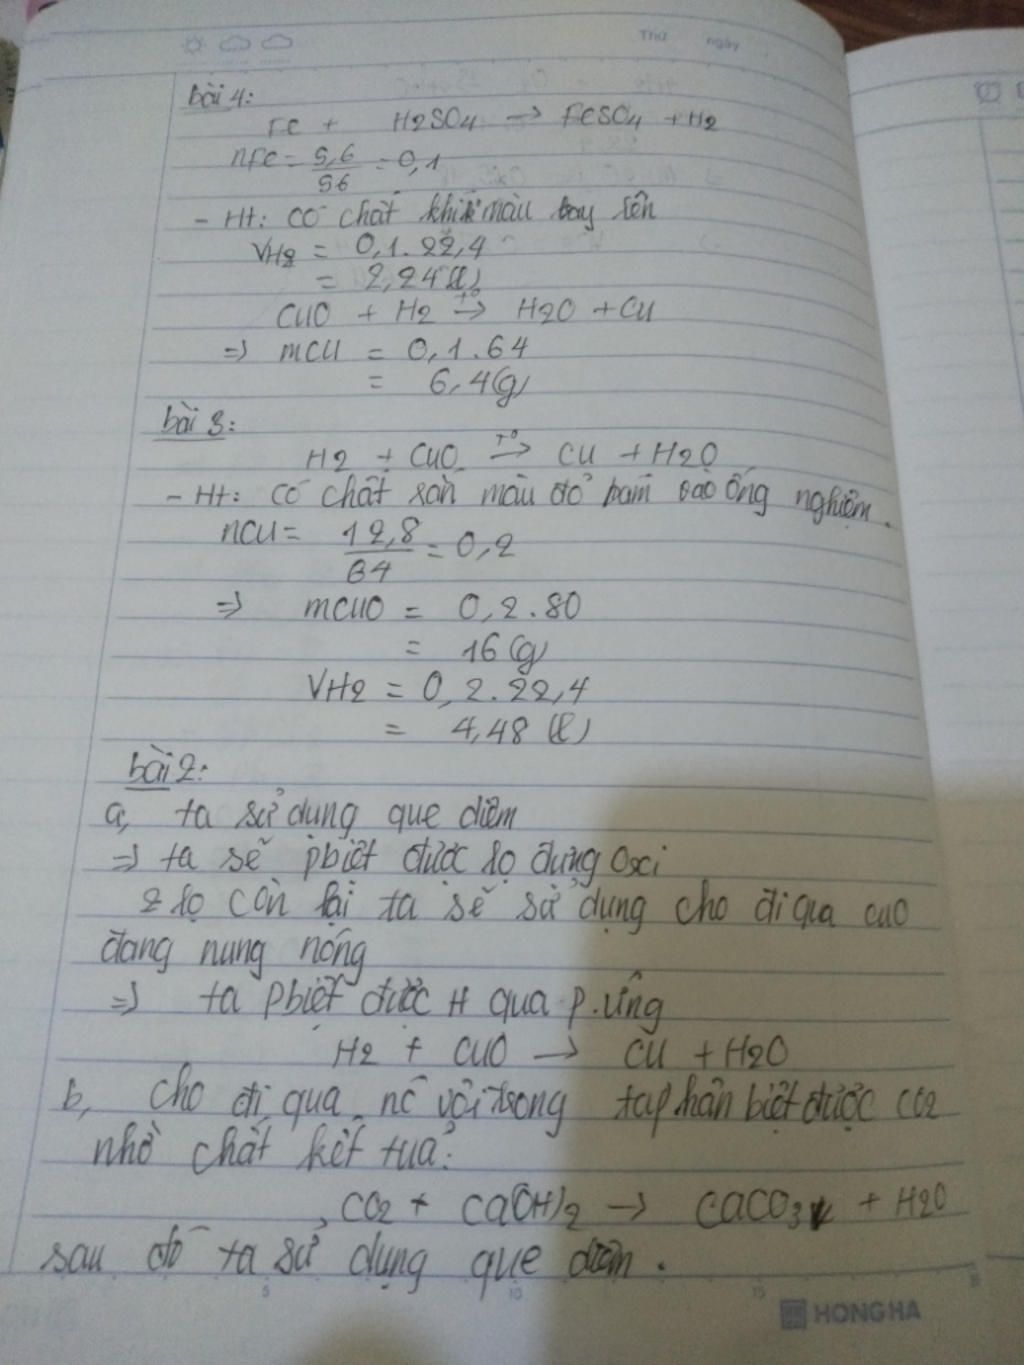 Thứ ngày
bài 4:
Fe + H2SO4 → FeSO4 + H2
nFe = 5,6/56 = 0,1
- Ht: Có chất khí màu bay lên
VH2 = 0,1.22,4
= 2,24(l)
CuO + H2 →t° H2O + Cu
=> mCu = 0,1.64
= 6,4(g)
bài 3:
H2 + CuO →t° Cu + H2O
- Ht: Có chất rắn màu đỏ bám vào ống nghiệm.
nCu = 12,8/64 = 0,2
=> mCuO = 0,2.80
= 16(g)
VH2 = 0,2.22,4
= 4,48(l)
bài 2:
a, ta sử dụng que diêm
=> ta sẽ pbiệt được lọ đựng Oxi
2 lọ còn lại ta sẽ sử dụng cho đi qua CuO
đang nung nóng
=> ta pbiệt được H qua p.ứng
H2 + CuO → Cu + H2O
b, Cho đi qua nc vôi trong ta phân biệt được CO2
nhờ chất kết tủa:
CO2 + Ca(OH)2 → CaCO3↓ + H2O
sau đó ta sử dụng que diêm.
5 10 15
HONG HA